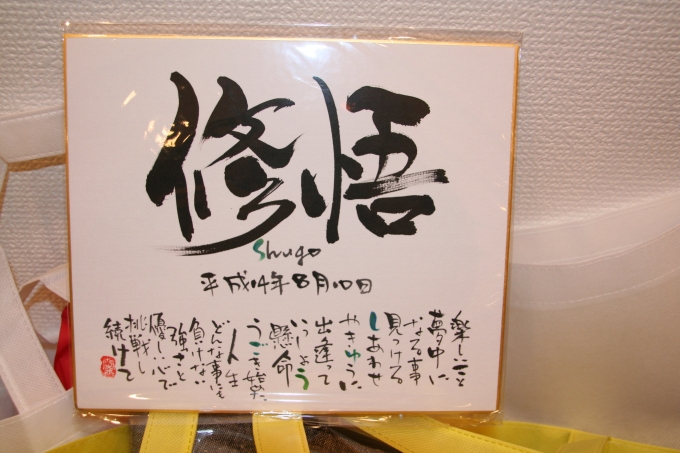 修悟
Shugo
平成14年8月10日
楽しいこと
夢中に
なる事
見つける
しあわせ
やきゅうに
出逢って
いっしょう
懸命
うごき始めた
人生
どんな事にも
負けない
強さと
優しい心で
挑戦し
続けて